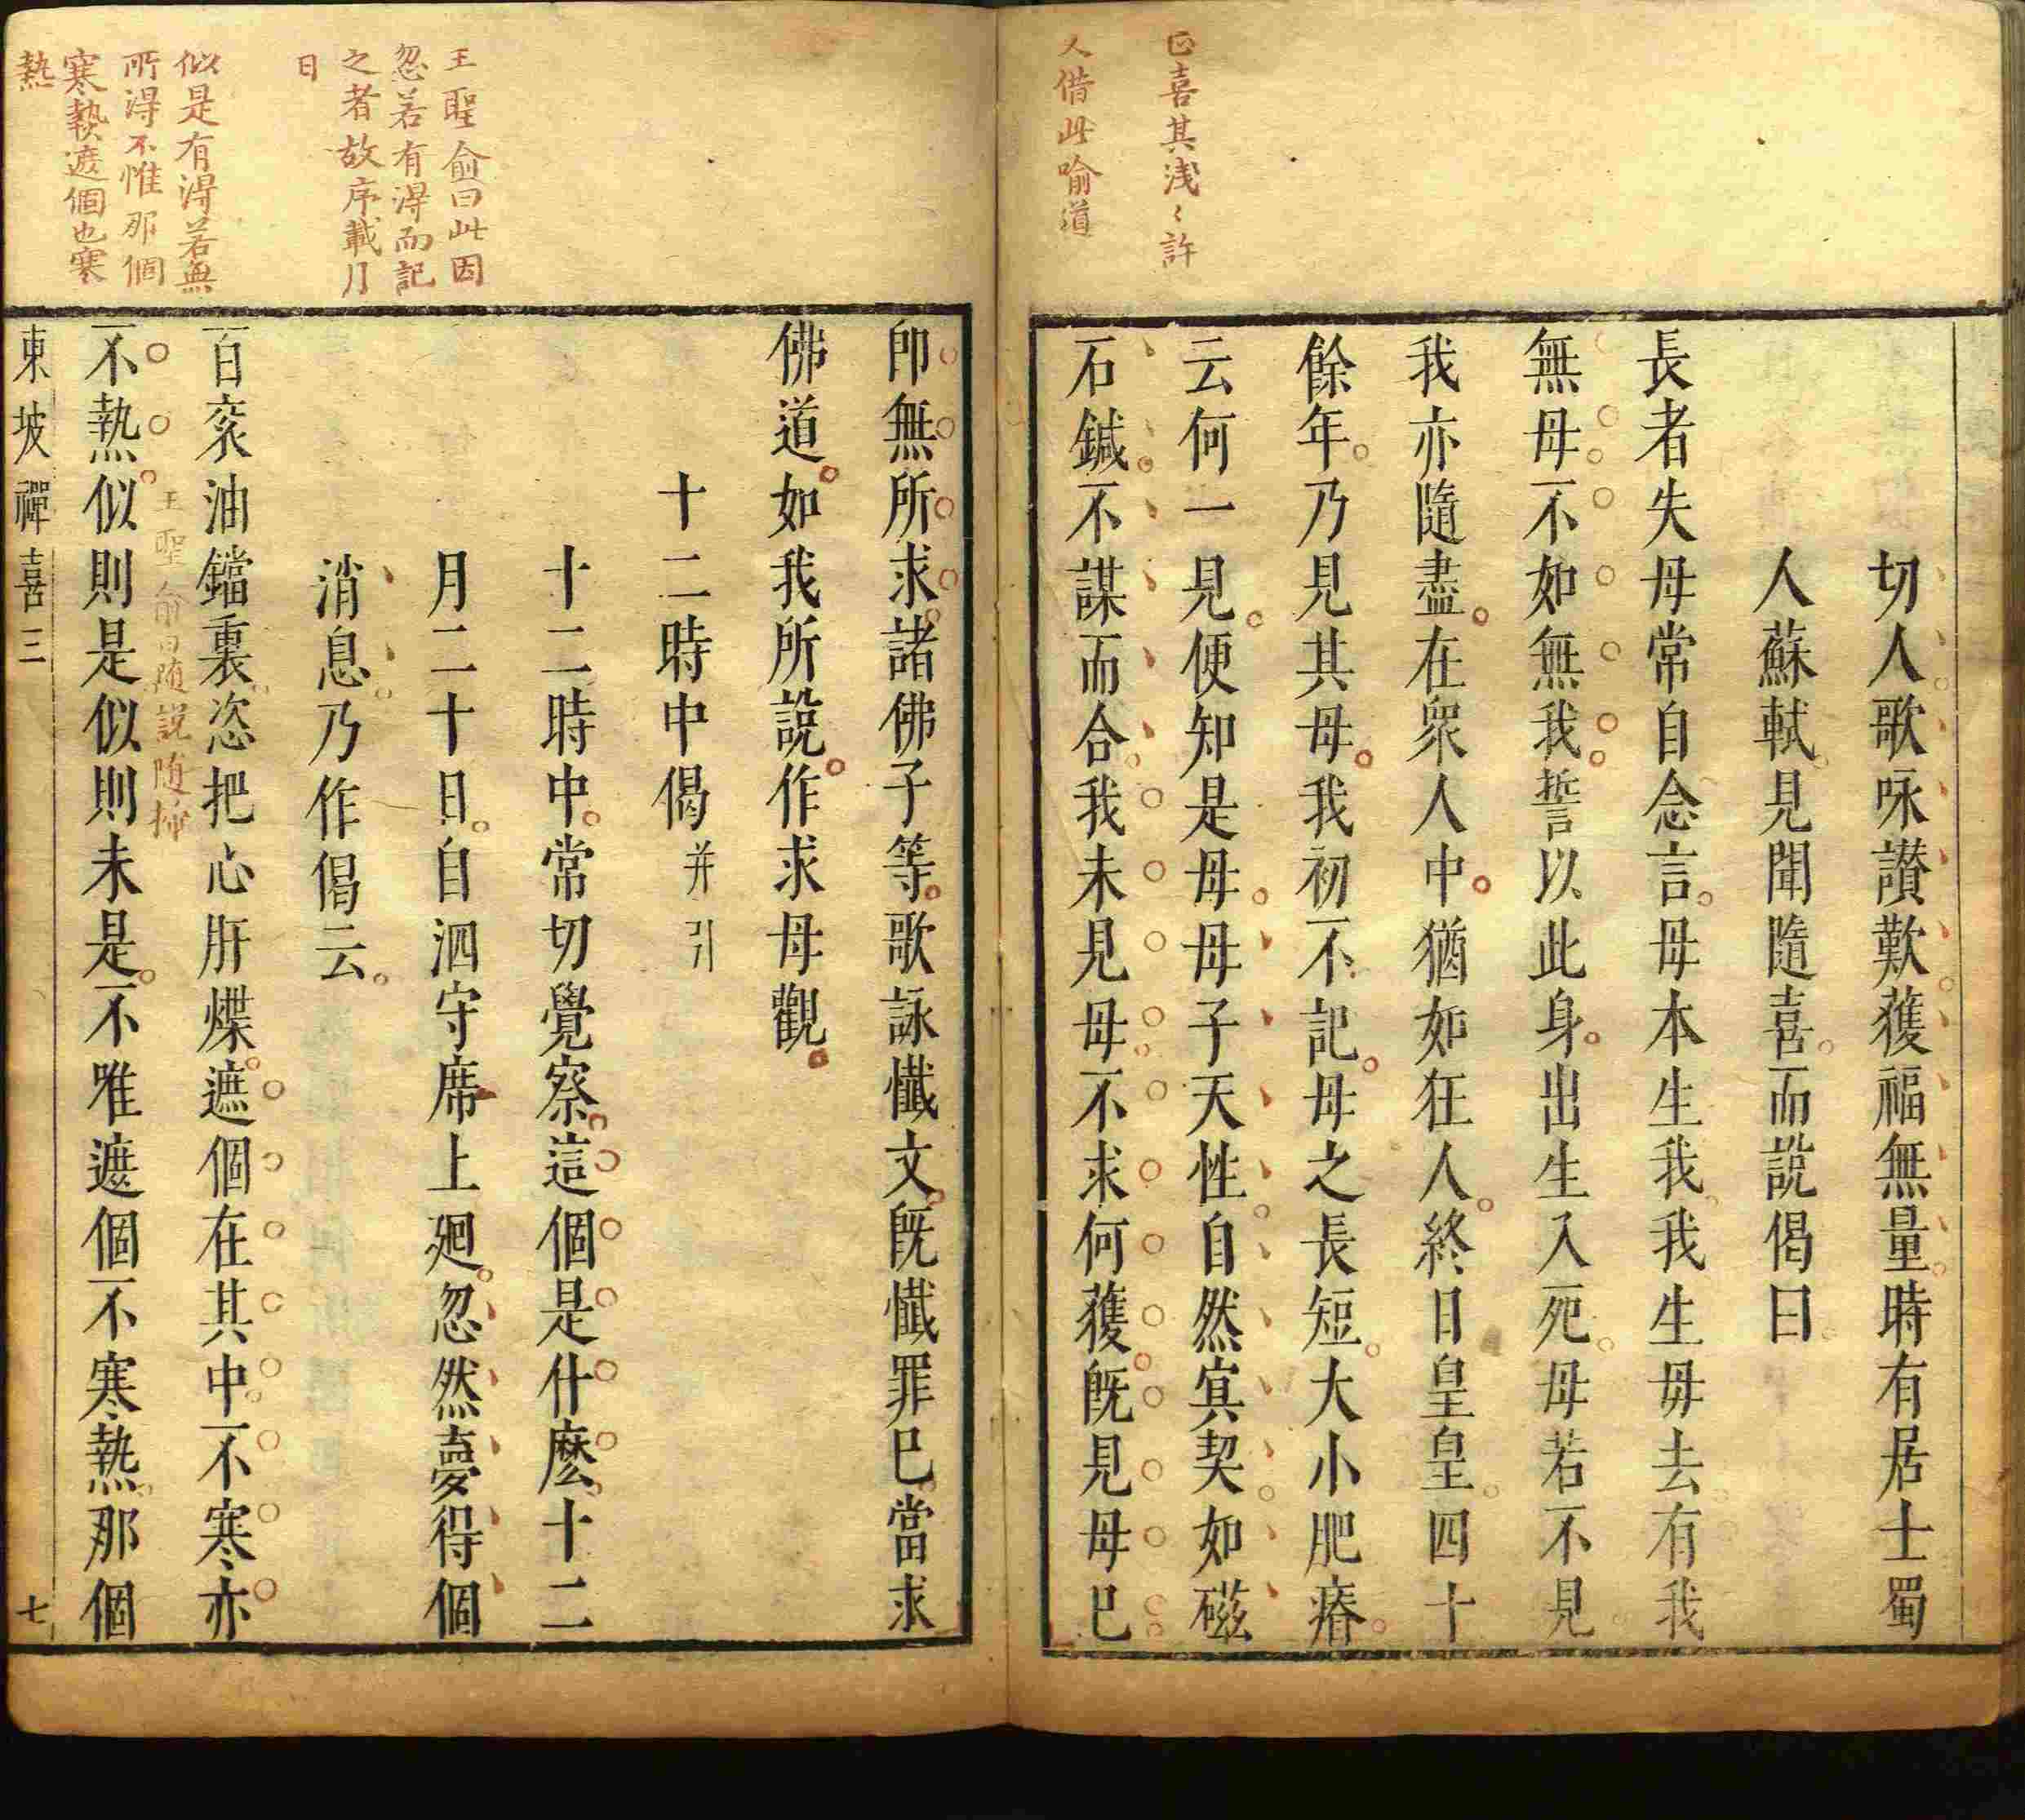 正喜其淺〻許
人借此喻道
切人歌咏讃歎獲福無量時有居士蜀
人蘇軾見聞隨喜而說偈曰
長者失母常自念言母本生我我生母去有我
無母不如無我誓以此身出生入死母若不見
我亦隨盡在衆人中猶如狂人終日皇皇四十
餘年乃見其母我初不記母之長短大小肥瘠
云何一見便知是母母子天性自然寘契如磁
石鍼不謀而合我未見母不求何獲旣見母已
王聖俞曰此因
忽若有得而記
之者故序載月
日
似是有得若無
所得不惟那個
寒熱遮個也寒
熱
卽無所求諸佛子等歌詠懺文旣懺罪已當求
佛道如我所說作求母觀
十二時中偈并引
十二時中常切覺察這個是什麽十二
月二十日自泗守席上廻忽然夢得個
消息乃作偈云
百衮油鐺裏恣把心肝煠遮個在其中不寒亦
王聖俞曰隨說隨掃
不熱似則是似則未是不唯遮個不寒熱那個
東坡禪喜三 七